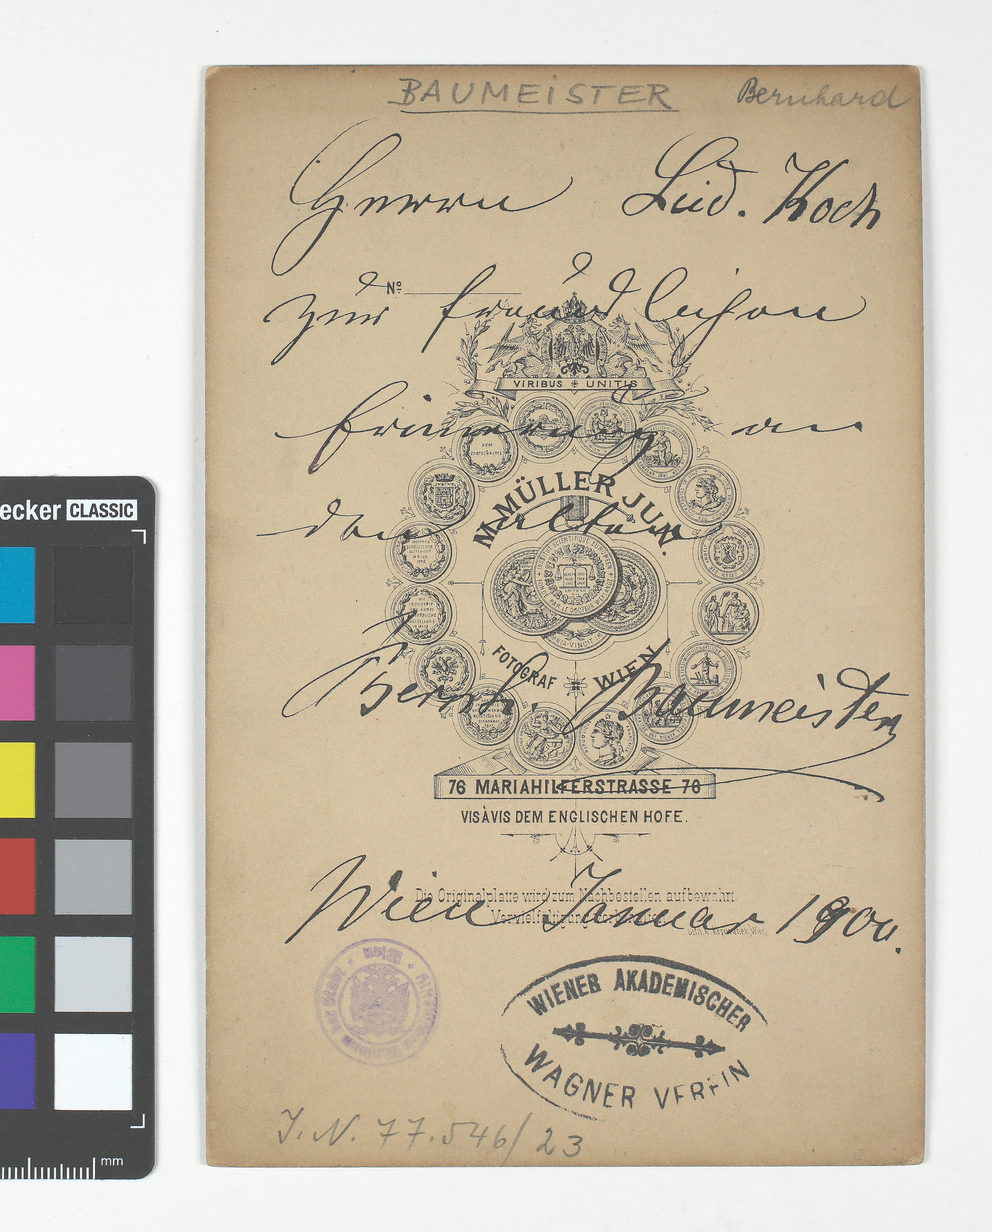 BAUMEISTER Bernhard
Herrn Lud. Koch
Nº
zur freundlichen
VIRIBUS UNITIS
Erinnerung an
den alten
M. MÜLLER JUN.
FOTOGRAF WIEN
Bernh. Baumeister
76 MARIAHILFERSTRASSE 76
VISÀVIS DEM ENGLISCHEN HOFE.
Die Originalplatte wird zum Nachbestellen aufbewahrt.
Vervielfältigung vorbehalten.
Wien Januar 1900.
WIENER AKADEMISCHER
WAGNER VEREIN
J. N. 77.546/23
ecker CLASSIC
mm